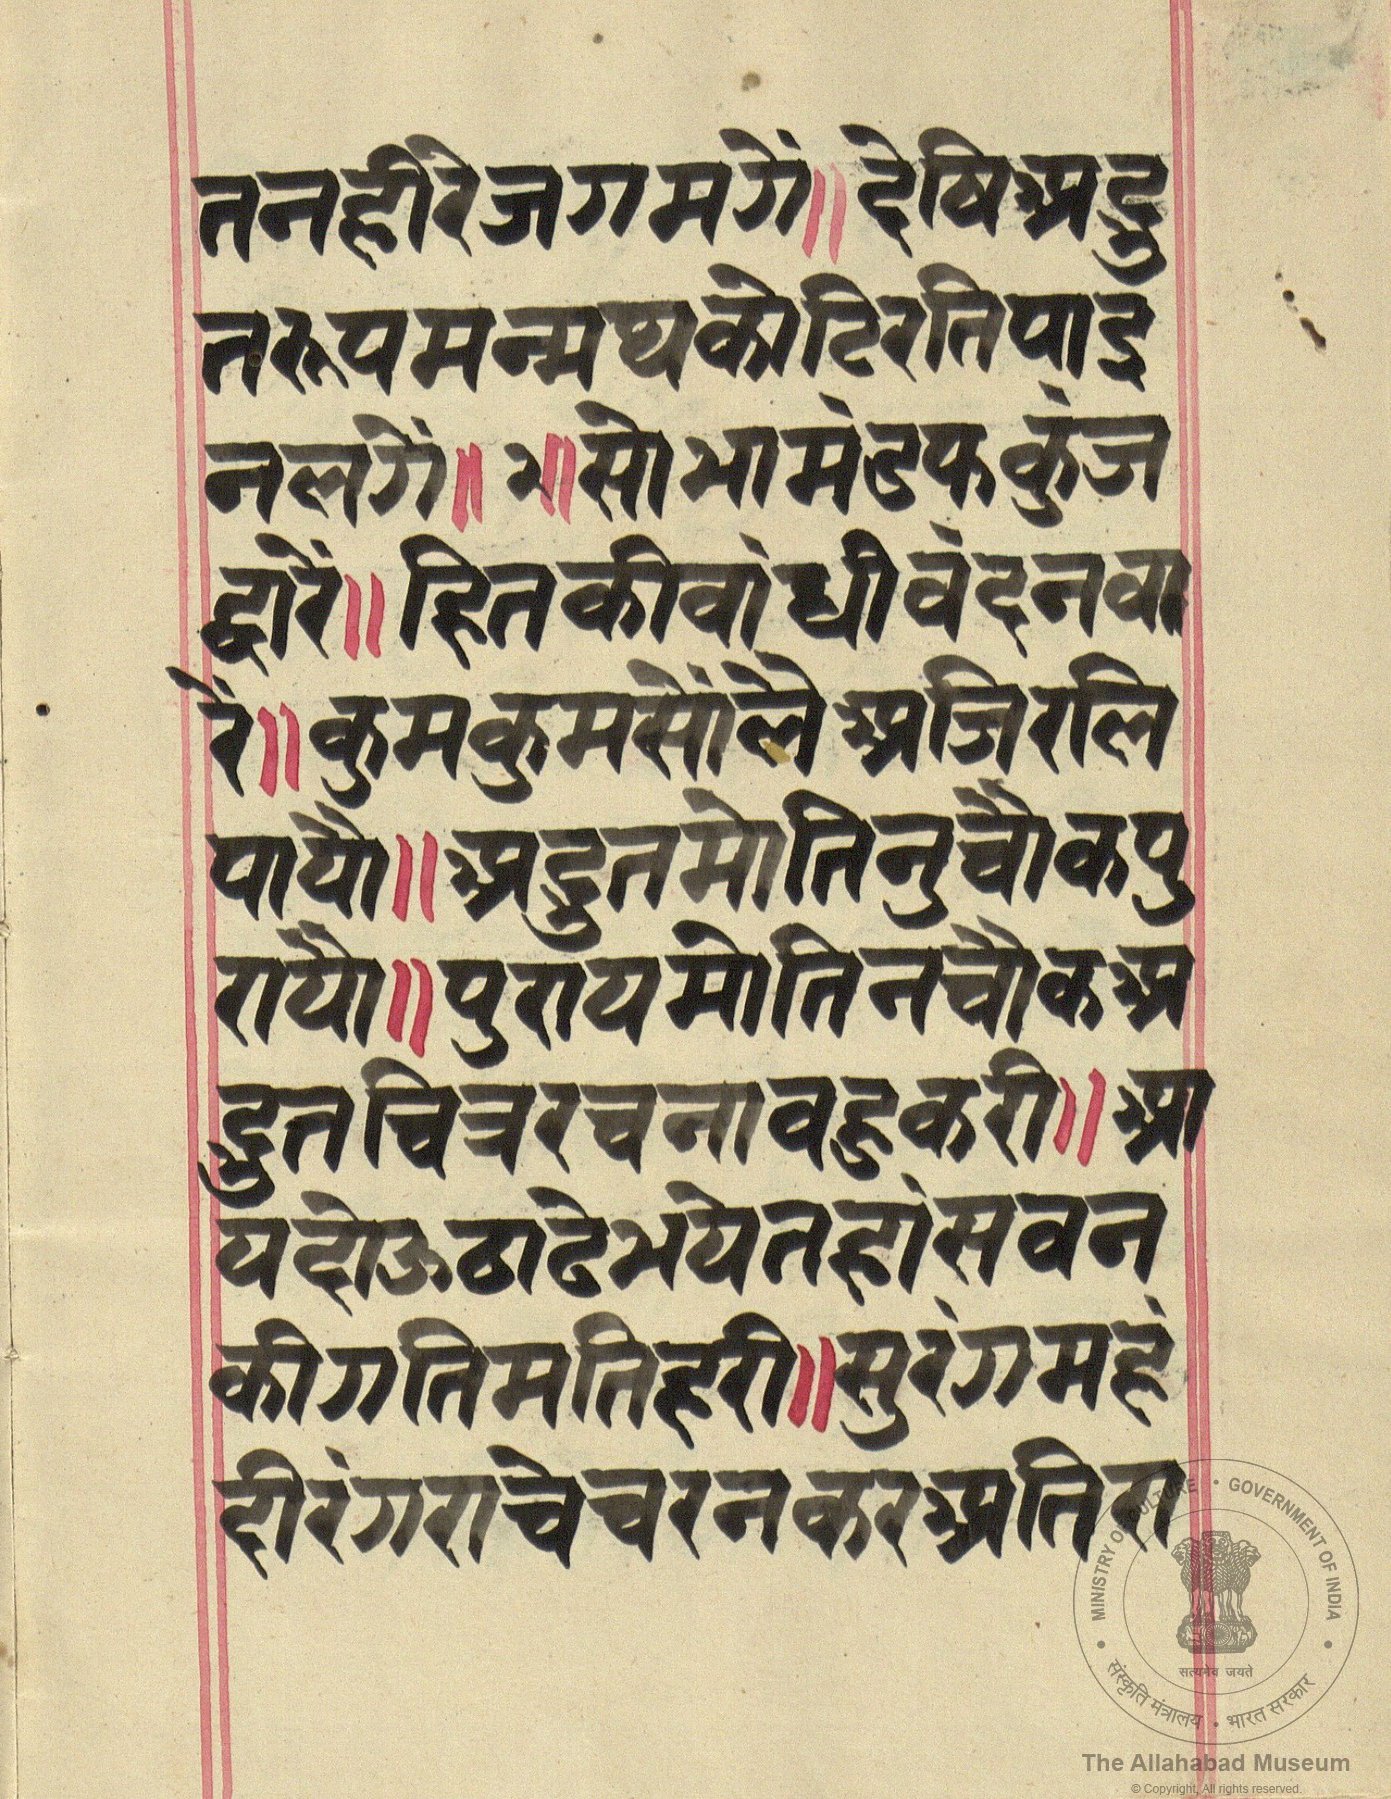 तनहीरेजगमगें॥ देषिअद्भु
तरूपमन्मथकोटिरतिपाइ
नलगें॥ २॥ सोभामंडफकुंज
द्वारें॥ हितकीवांधीवंदनवा
रें॥ कुमकुमसौंलेअजिरलि
पायौ॥ अद्भुतमोतिनुचौकपु
रायौ॥ पुरायमोतिनचौकअ
द्भुतचित्ररचनावहुकरी॥ आ
यदोऊठाढेभयेतहांसवन
कीगतिमतिहरी॥ सुरंगमहं
दीरंगराचेचरनकरअतिरा
MINISTRY OF CULTURE • GOVERNMENT OF INDIA
सत्यमेव जयते
संस्कृति मंत्रालय • भारत सरकार
The Allahabad Museum
© Copyright, All rights reserved.